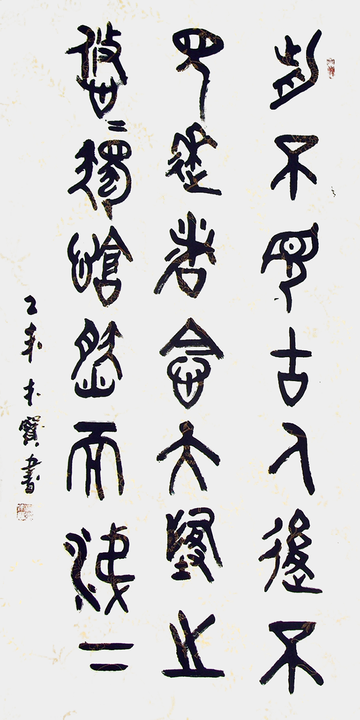 前不見古人後不
見來者念天地之
悠〻獨愴然而涕下
乙未寶書